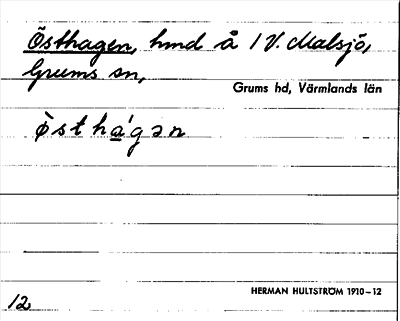 Östhagen, hmd å 1 V. Malsjö,
Grums sn,
Grums hd, Värmlands län
ö̀sthá̲gən
HERMAN HULTSTRÖM 1910–12
12